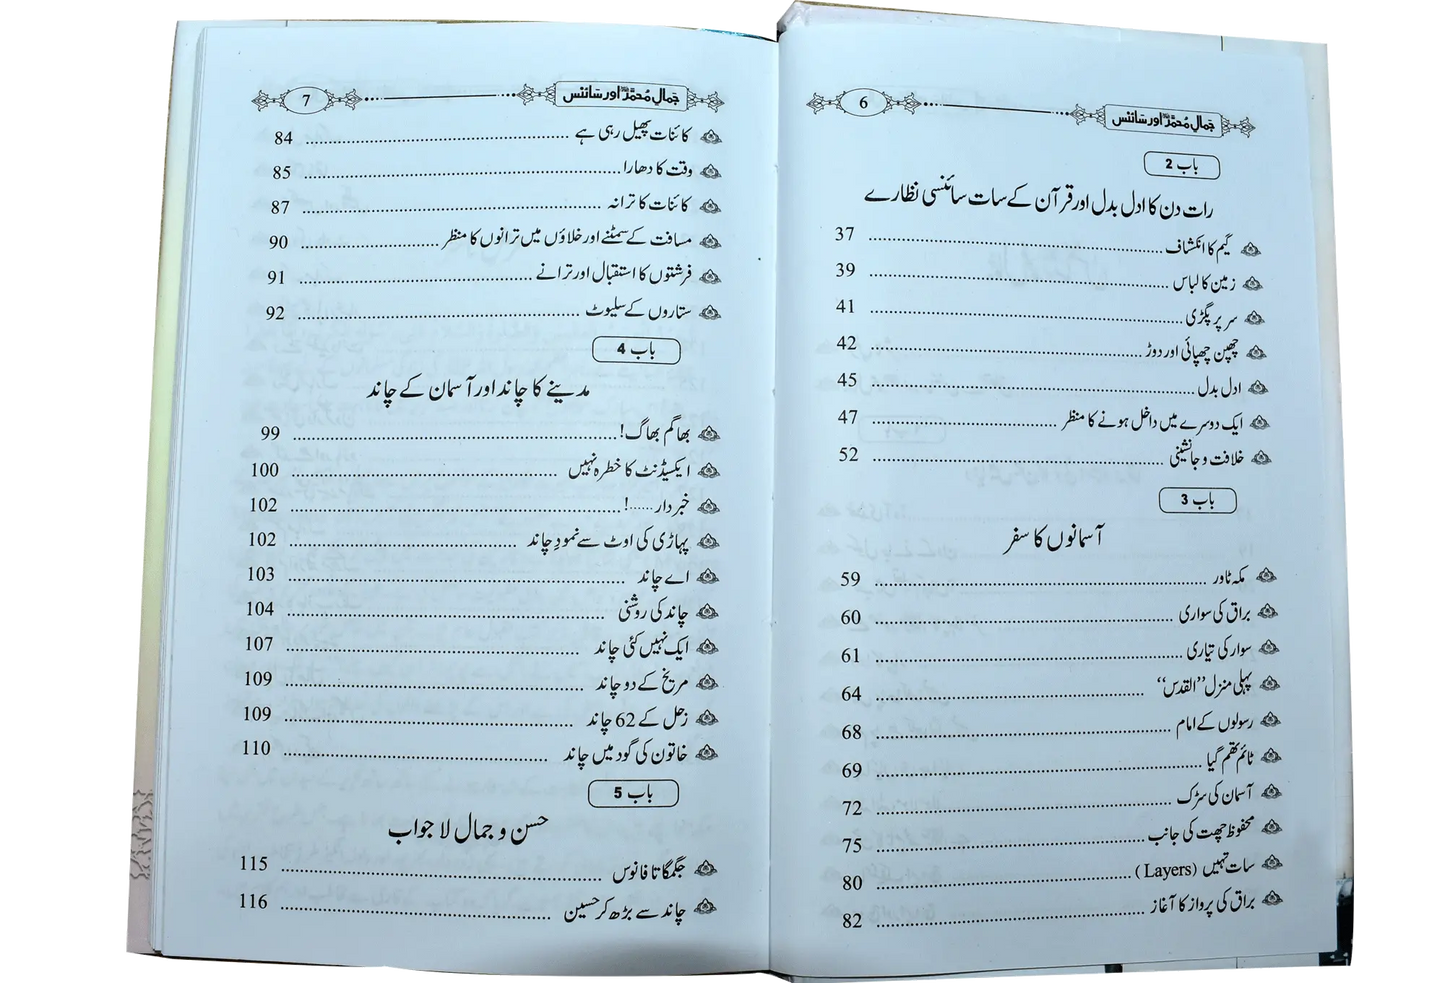 6 جمالِ محمدﷺ اور سائنس
باب 2
رات دن کا ادل بدل اور قرآن کے سات سائنسی نظارے
گیم کا انکشاف ........ 37
زمین کا لباس ........ 39
سر پر پگڑی ........ 41
چھپن چھپائی اور دوڑ ........ 42
ادل بدل ........ 45
ایک دوسرے میں داخل ہونے کا منظر ........ 47
خلافت و جانشینی ........ 52
باب 3
آسمانوں کا سفر
مکہ ٹاور ........ 59
براق کی سواری ........ 60
سوار کی تیاری ........ 61
پہلی منزل ’’القدس‘‘ ........ 64
رسولوں کے امام ........ 68
ٹائم تھم گیا ........ 69
آسمان کی سڑک ........ 72
محفوظ چھت کی جانب ........ 75
سات تہیں (Layers) ........ 80
براق کی پرواز کا آغاز ........ 82
7 جمالِ محمدﷺ اور سائنس
کائنات پھیل رہی ہے ........ 84
وقت کا دھارا ........ 85
کائنات کا ترانہ ........ 87
مسافت کے سمٹنے اور خلاؤں میں ترانوں کا منظر ........ 90
فرشتوں کا استقبال اور ترانے ........ 91
ستاروں کے سلیوٹ ........ 92
باب 4
مدینے کا چاند اور آسمان کے چاند
بھاگم بھاگ! ........ 99
ایکسیڈنٹ کا خطرہ نہیں ........ 100
خبردار......! ........ 102
پہاڑی کی اوٹ سے نمودِ چاند ........ 102
اے چاند ........ 103
چاند کی روشنی ........ 104
ایک نہیں کئی چاند ........ 107
مریخ کے دو چاند ........ 109
زحل کے 62 چاند ........ 109
خاتون کی گود میں چاند ........ 110
باب 5
حسن و جمال لاجواب
جگمگاتا فانوس ........ 115
چاند سے بڑھ کر حسین ........ 116